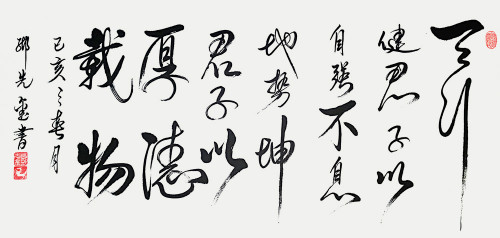 天行
健君子以
自强不息
地势坤
君子以
厚德
载物
己亥之春月
邵先奎書